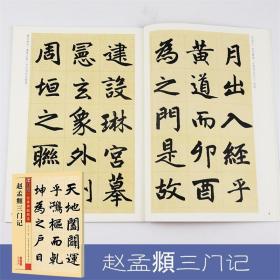 月出入經乎
黄道而卯酉
為之門是故
建設琳宮摹
憲玄象外
周垣之聯
赵孟頫三门记
天地闔闢運
乎鴻樞而乾
坤為之戶日
赵孟頫三门记